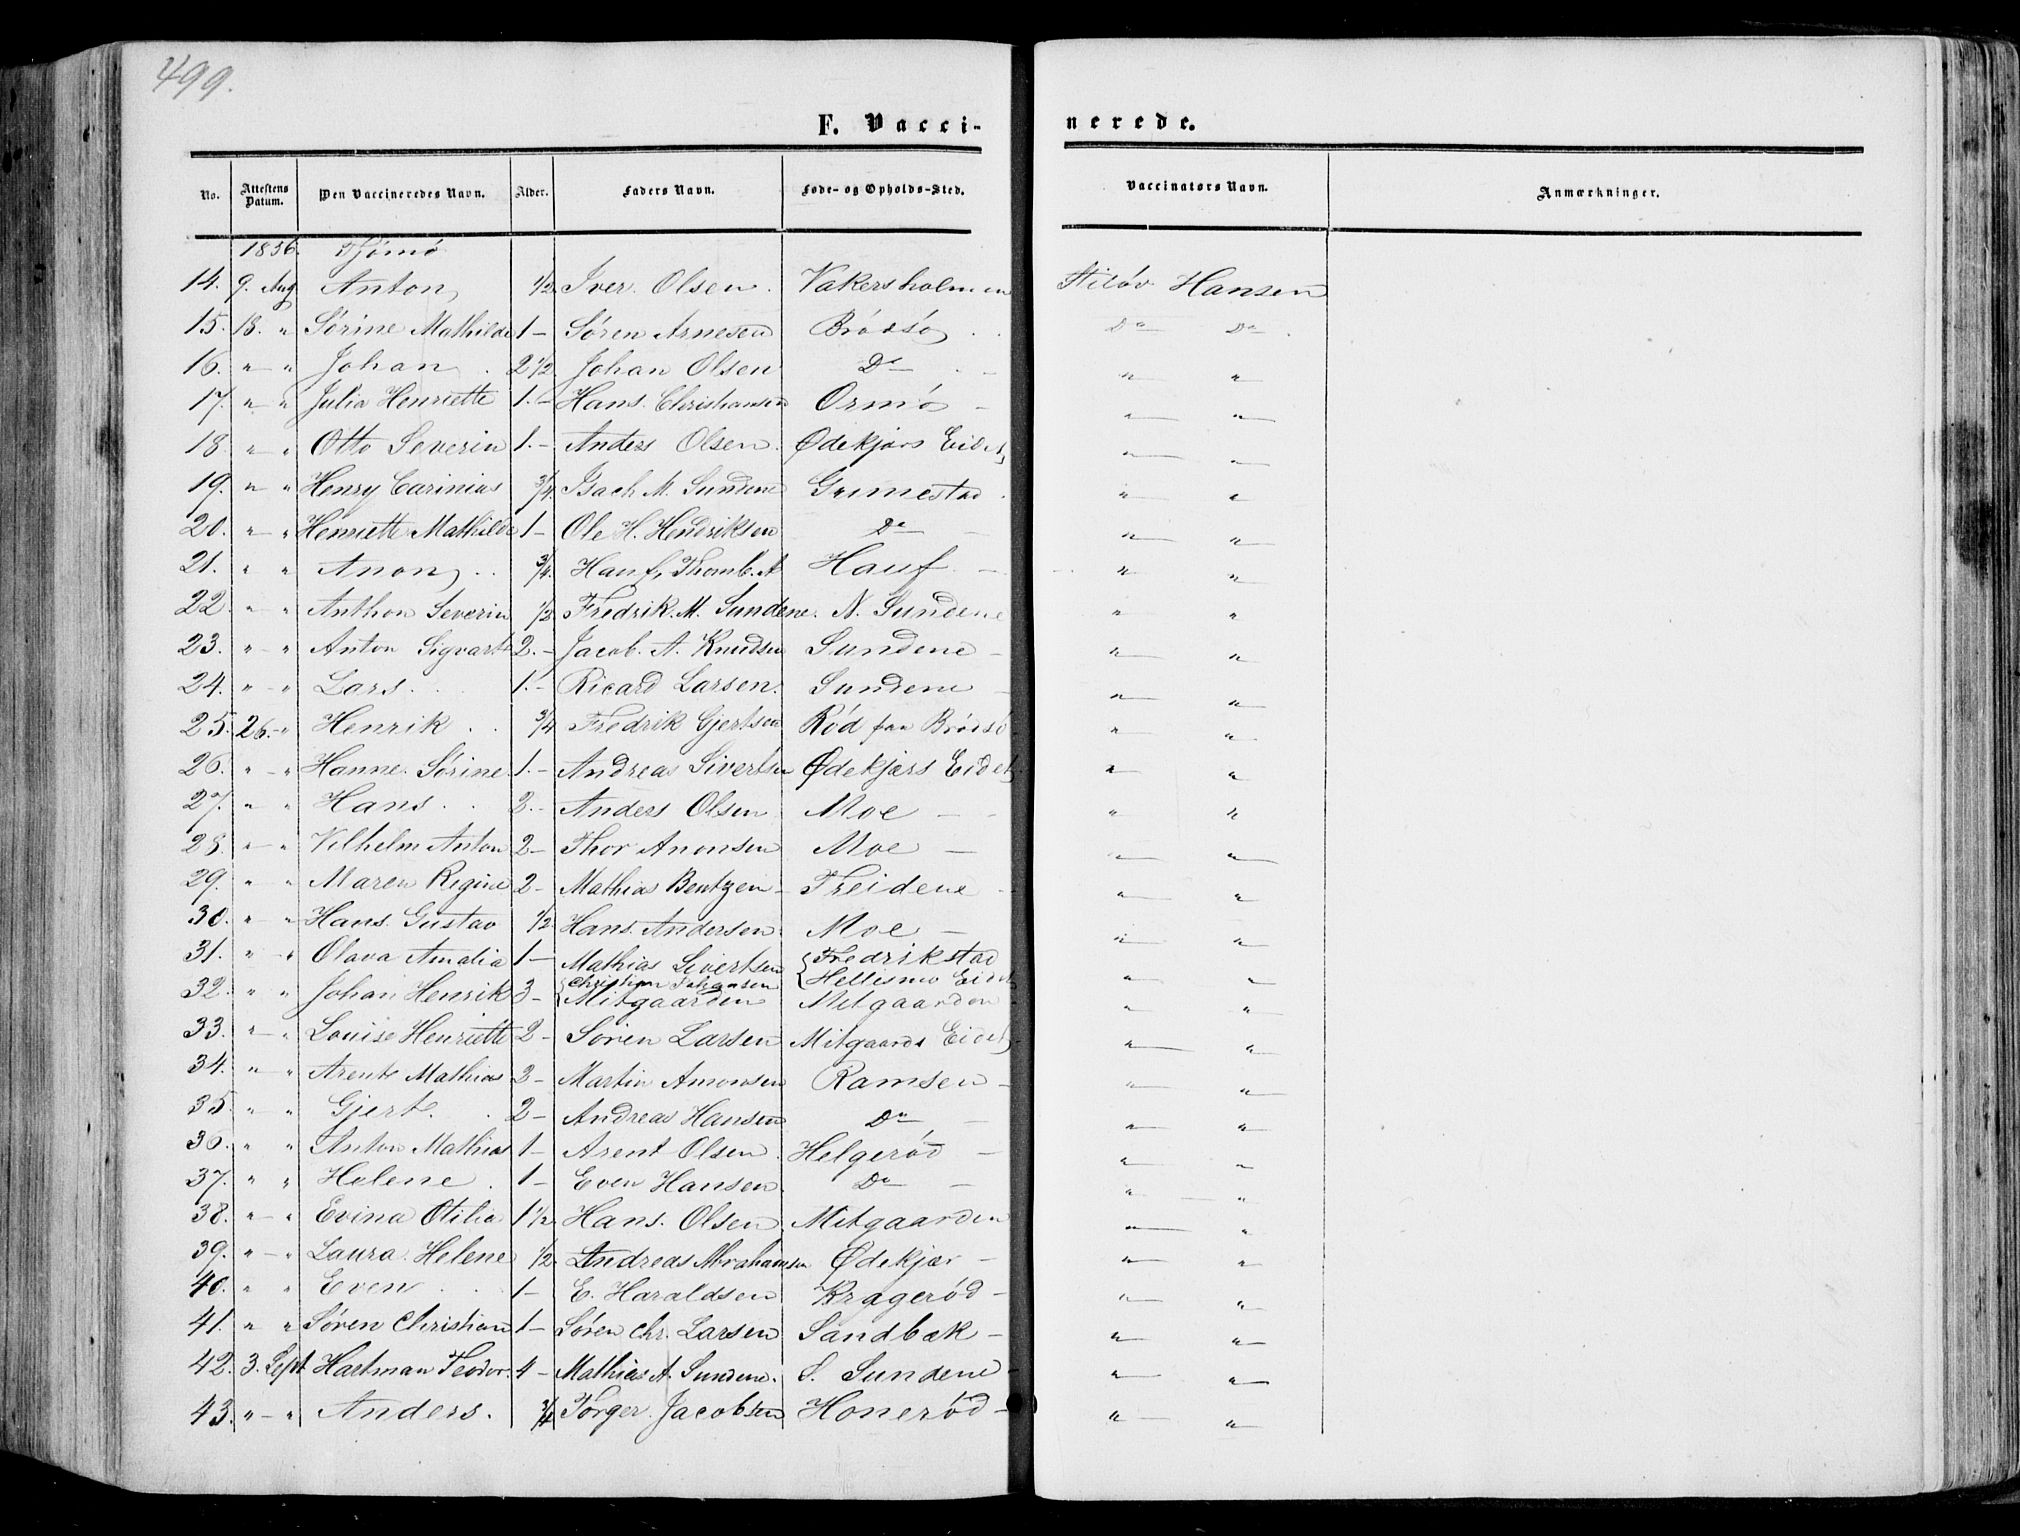 499.
F. Vacci-
nerede.
No. Attestens Datum. Den Vaccineredes Navn. Alder. Faders Navn. Føde- og Opholds-Sted. Vaccinators Navn. Anmærkninger.
1856. Tjömö
14. 9. Aug Anton 1/2. Iver Olsen. Vakersholmen Hansen
15. 18. " Sörine Mathilde 1 - Sören Arnesen Brödsö Do Do
16. " " Johan 2 1/2 Johan Olsen Do " "
17. " " Julia Henriette 1. - Hans Christiansen Ormö - " "
18. " " Otto Severin 1. - Anders Olsen. Ødekjærs Eidet " "
19. " " Henry Carinius 3/4. Isach M. Sundene Grimestad " "
20. " " Henriette Mathilde 1 - Ole H. Hendriksen Do " "
21. " " Anon 3/4. Hauf - " "
22. " " Anthon Severin 1/2 Fredrik. M. Sundene. N. Sundene " "
23. " " Anton Sigvart 2. - Jacob. A. Knudsen Sundene - " "
24. " " Lars. 1. - Ricard Larsen. Sundene - " "
25. 26. - " Henrik 3/4 Fredrik Gjertsen Röd paa Brödsö " "
26. " " Hanne Sörine 1. - Andreas Sivertsen Ødekjærs Eidet " "
27. " " Hans 2. - Anders Olsen Moe - " "
28. " " Vilhelm Anton 2 - Thor Anonsen Moe - " "
29. " " Maren Regine 2 - Mathias Bentzen - Treidene " "
30. " " Hans Gustav 1/2 Hans Andersen. Moe - " "
31. " " Olava Amalia 1 - Mathias Sivertsen { Fredrikstad Hellismo Eidet " "
32. " " Johan Henrik 3 - { Christian Johansen Mitgaarden Mitgaarden " "
33. " " Louise Henriette 2 - Sören Larsen Mitgaards Eidet " "
34. " " Arent Mathias 3 - Martin Amonsen Ramsen - " "
35. " " Gjert. 2 - Andreas Hansen Do - " "
36. " " Anton Mathias 1 - Arent Olsen. Helgeröd - " "
37. " " Helene 1 - Even Hansen. Do - " "
38. " " Evina Otilia 1 1/2 Hans. Olsen Mitgaarden " "
39. " " Laura Helene 1/2. Andreas Abrahamsen Ødekjær - " "
40. " " Even 1 - E. Haraldsen Krageröd - " "
41. " " Sören Christian 1 - Sören Chr. Larsen Sandbæk - " "
42. 3. Sept Hartman Teodor. 4 - Mathias A. Sundene. S. Sundene - " "
43. " " Anders. 3/4 Torger Jacobsen Honeröd - " "